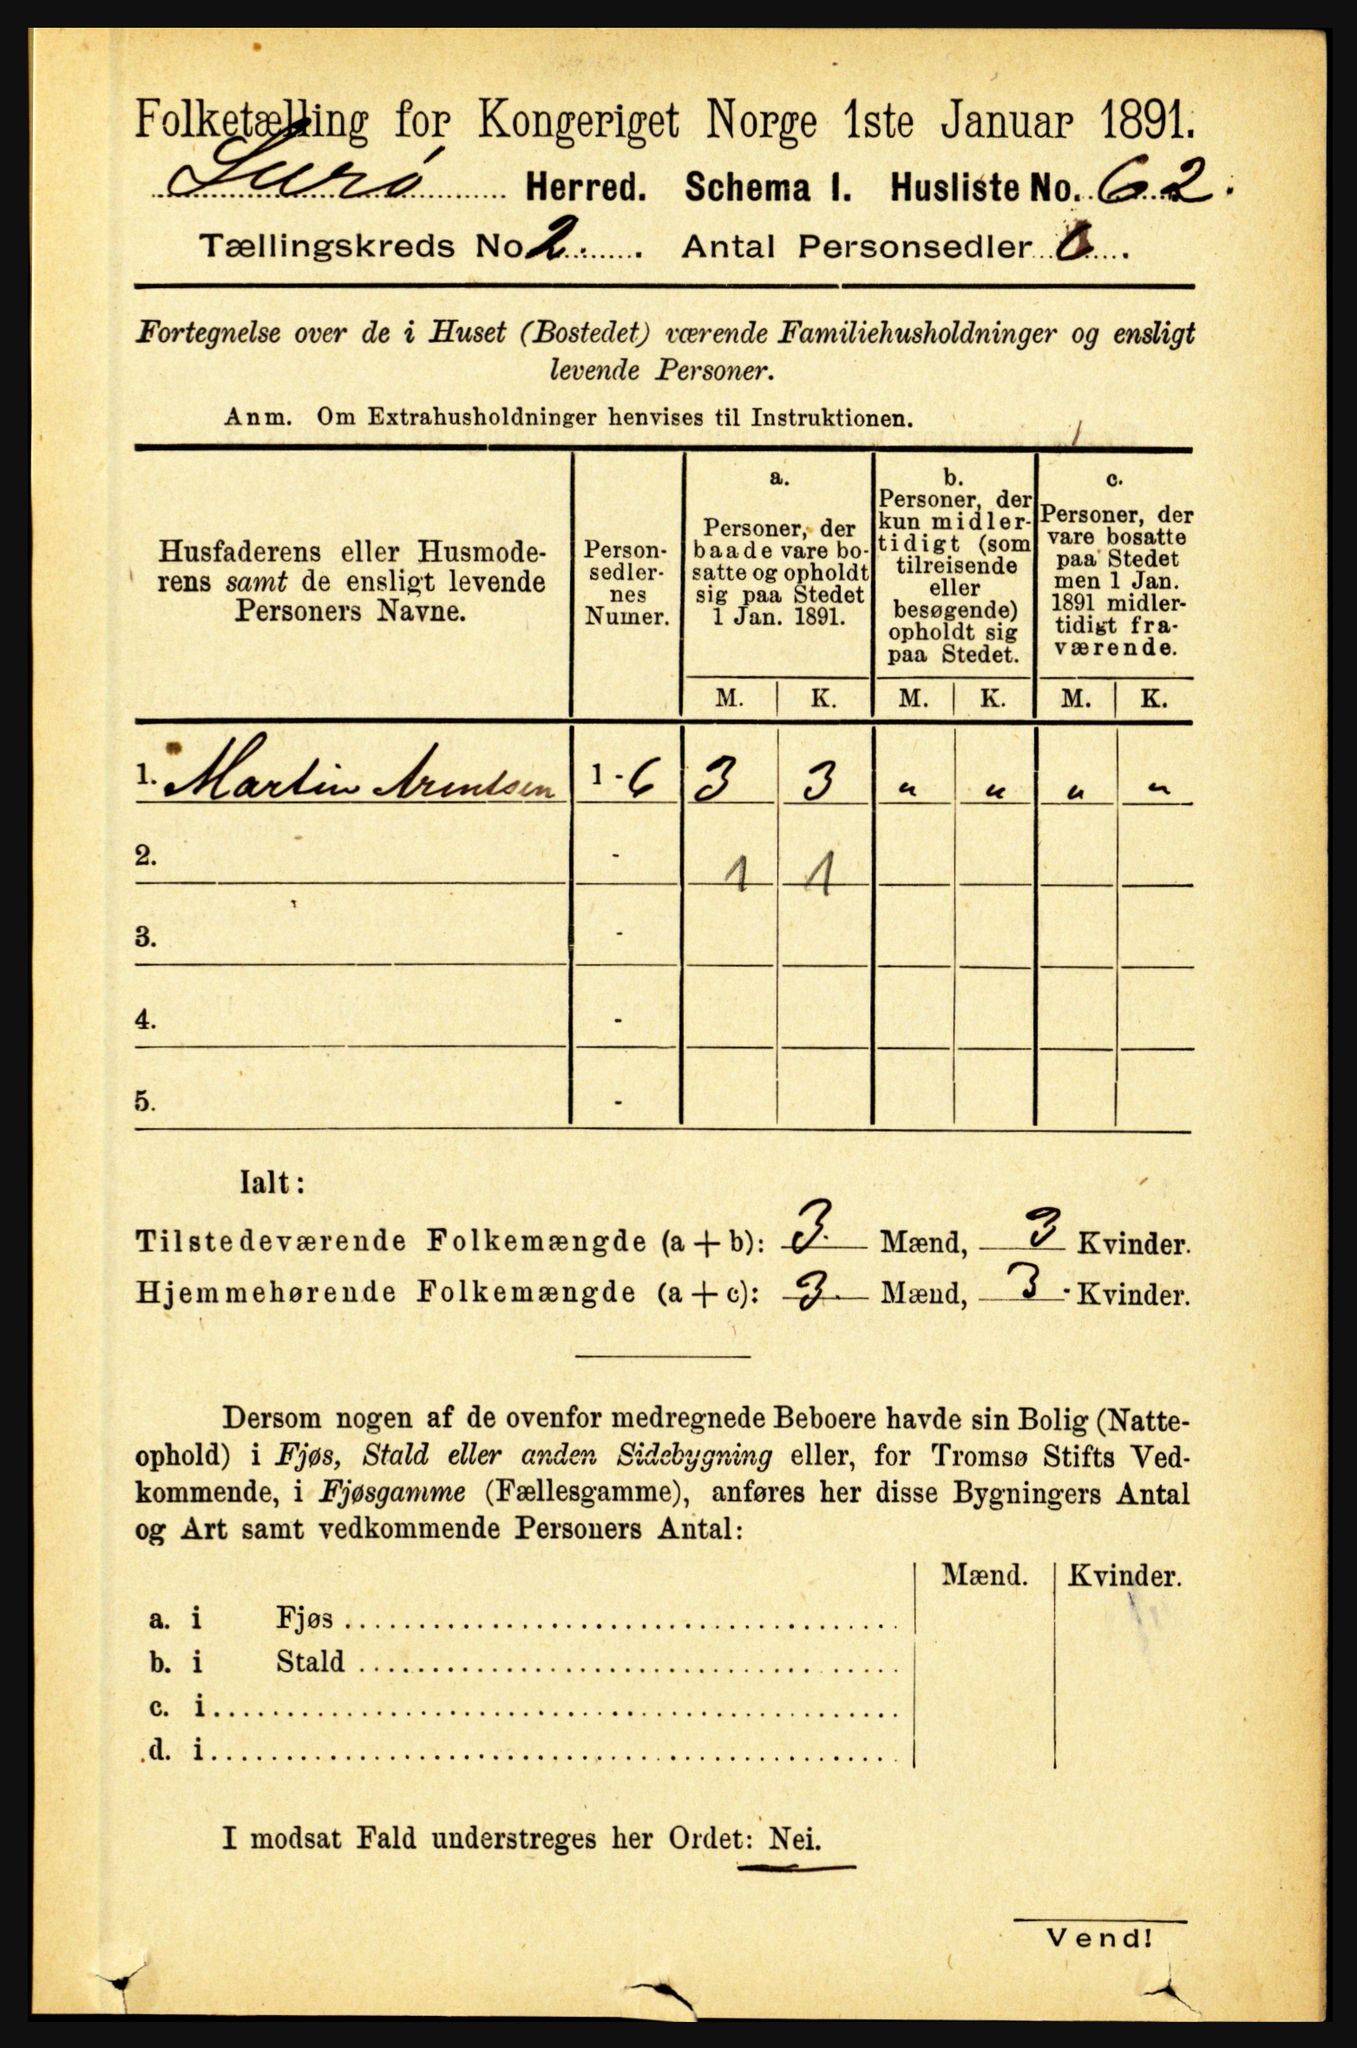 Folketælling for Kongeriget Norge 1ste Januar 1891.
Lurø Herred. Schema I. Husliste No. 62.
Tællingskreds No 2. Antal Personsedler 6.
Fortegnelse over de i Huset (Bostedet) værende Familiehusholdninger og ensligt
levende Personer.
Anm. Om Extrahusholdninger henvises til Instruktionen.
Husfaderens eller Husmode-
rens samt de ensligt levende
Personers Navne.
Person-
sedler-
nes
Numer.
a.
Personer, der
baade vare bo-
satte og opholdt
sig paa Stedet
1 Jan. 1891.
b.
Personer, der
kun midler-
tidigt (som
tilreisende
eller
besøgende)
opholdt sig
paa Stedet.
c.
Personer, der
vare bosatte
paa Stedet
men 1 Jan.
1891 midler-
tidigt fra-
værende.
M. K. M. K. M. K.
1. Martin Arentsen 1 - 6 3 3 " " " "
2. - 1 1
3. -
4. -
5. -
Ialt:
Tilstedeværende Folkemængde (a + b): 3. Mænd, 3 Kvinder.
Hjemmehørende Folkemængde (a + c): 3. Mænd, 3 Kvinder.
Dersom nogen af de ovenfor medregnede Beboere havde sin Bolig (Natte-
ophold) i Fjøs, Stald eller anden Sidebygning eller, for Tromsø Stifts Ved-
kommende, i Fjøsgamme (Fællesgamme), anføres her disse Bygningers Antal
og Art samt vedkommende Personers Antal:
Mænd. Kvinder.
a. i Fjøs
b. i Stald
c. i
d. i
I modsat Fald understreges her Ordet: Nei.
Vend!